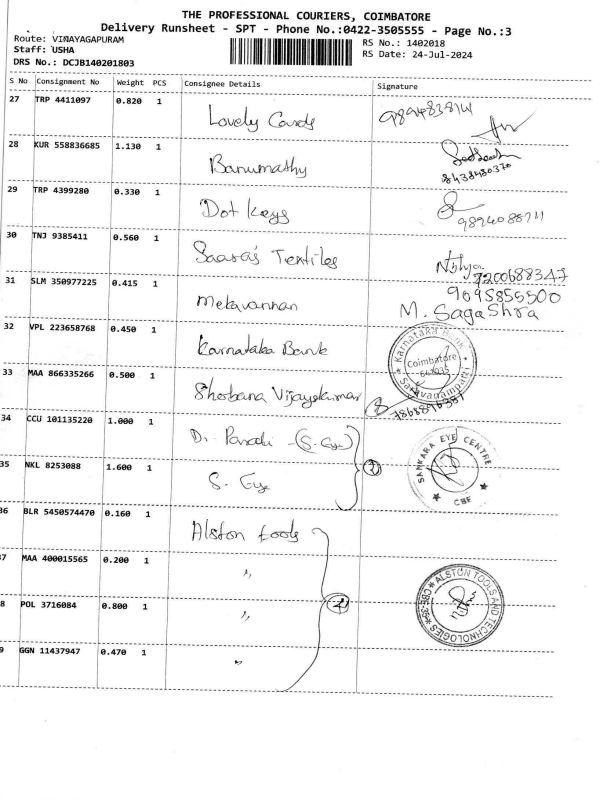 THE PROFESSIONAL COURIERS, COIMBATORE
Delivery Runsheet - SPT - Phone No.:0422-3505555 - Page No.:3
Route: VINAYAGAPURAM
RS No.: 1402018
Staff: USHA
RS Date: 24-Jul-2024
DRS No.: DCJB140201803
S No Consignment No Weight PCS Consignee Details Signature
27 TRP 4411097 0.820 1 Lovely Cards
28 KUR 558836685 1.130 1 Banumathy 8438480370
29 TRP 4399280 0.330 1 Dot Keys
30 TNJ 9385411 0.560 1 Saara's Textiles Nithya 7200688347
31 SLM 350977225 0.415 1 Mekavannan 9095855500
M. Sagashra
32 VPL 223658768 0.450 1 Karnataka Bank Karnataka Bank Coimbatore 641035 Saravanampatti
33 MAA 866335266 0.500 1 Shobana Vijayakumar
34 CCU 101135220 1.000 1 (S. Eye)
35 NKL 8253088 1.600 1 S. Eye SANKARA EYE CENTRE CBE
36 BLR 5450574470 0.160 1 Alston tools
37 MAA 400015565 0.200 1 "
8 POL 3716084 0.800 1 " ALSTON TOOLS AND TECHNOLOGIES CBE-35
9 GGN 11437947 0.470 1 "